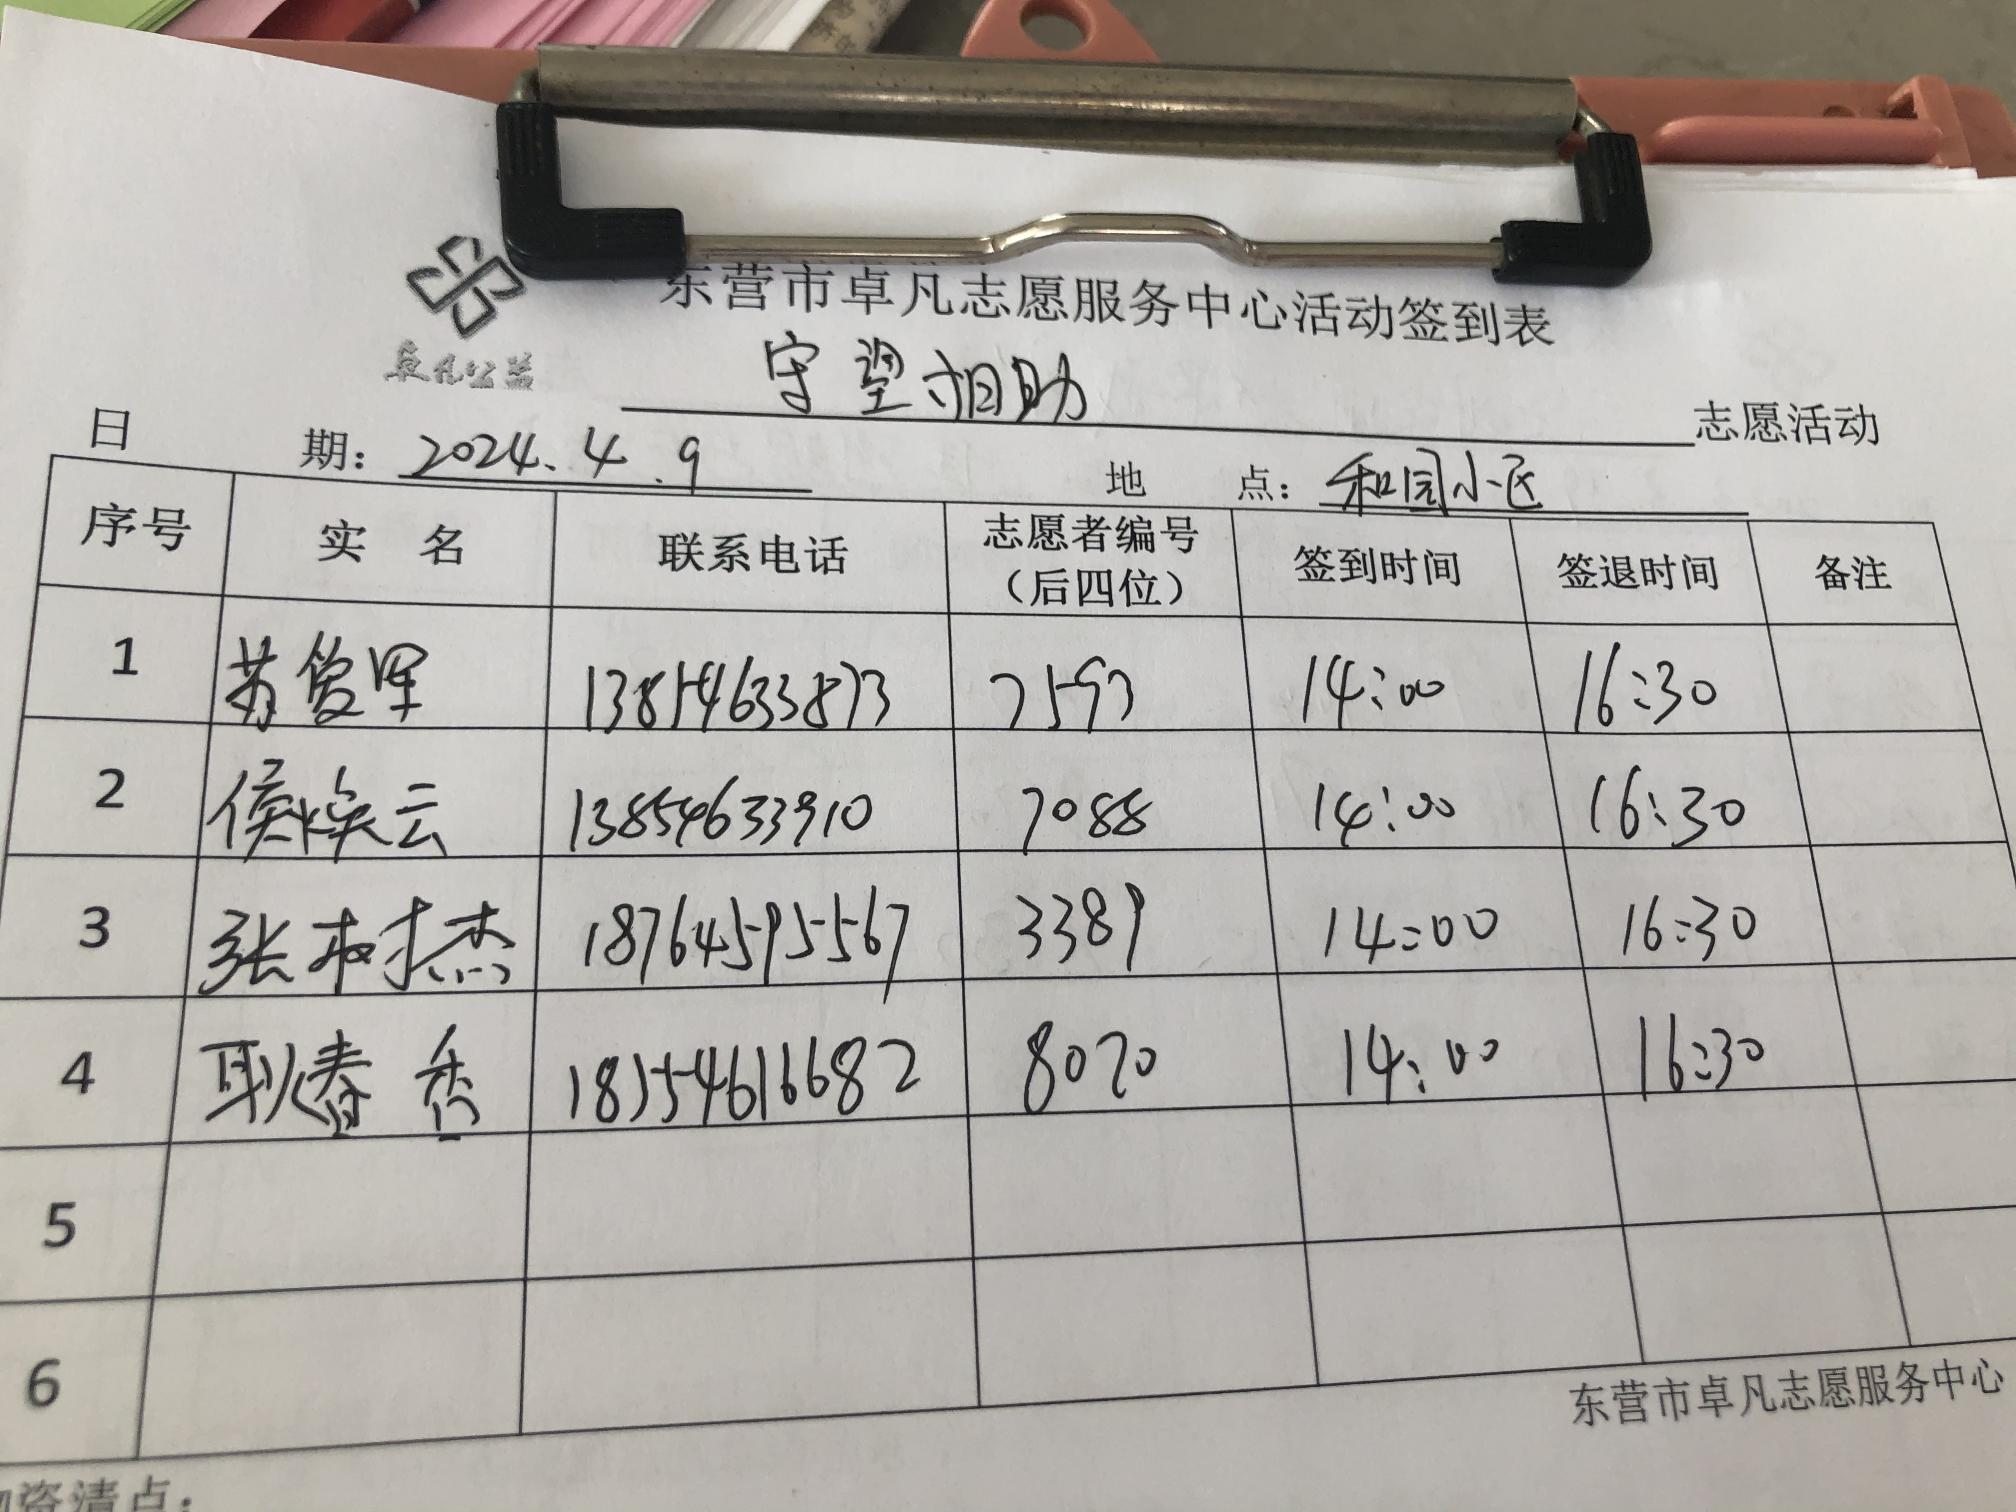 东营市卓凡志愿服务中心活动签到表
卓凡公益
守望相助 志愿活动
日 期: 2024.4.9 地 点: 和园小区
序号 实 名 联系电话 志愿者编号（后四位） 签到时间 签退时间 备注
1 苏俊军 13854633873 7593 14:00 16:30
2 侯焕云 13854633910 7088 14:00 16:30
3 张树杰 18764595567 3389 14:00 16:30
4 耿春香 18554616682 8070 14:00 16:30
5
6
东营市卓凡志愿服务中心
资清点: